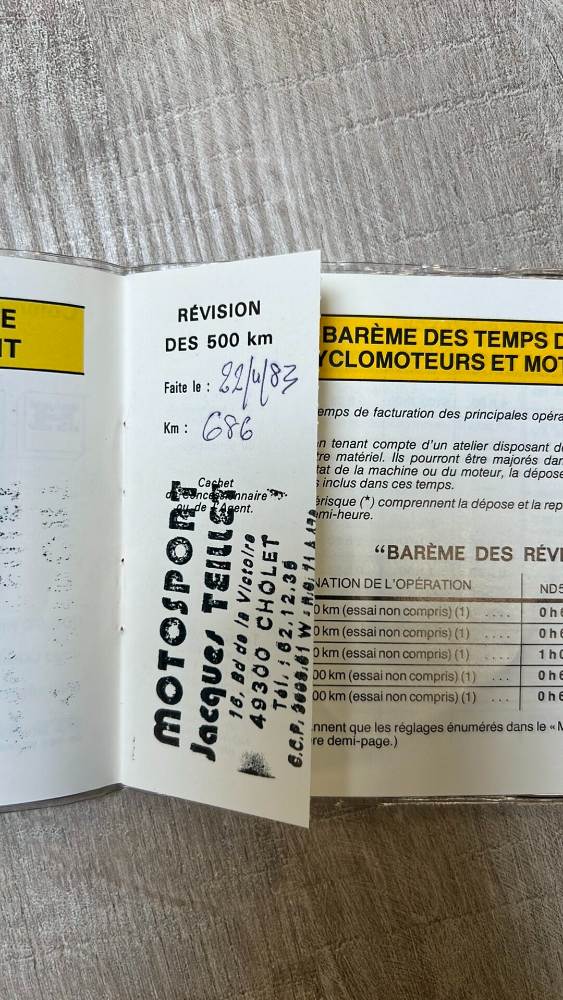 E
T
RÉVISION
DES 500 km
Faite le : 22/4/83
Km : 686
Cachet
du Concessionnaire
ou de l'Agent.
MOTOSPORT
Jacques TEILLET
16, Bd de la Victoire
49300 CHOLET
Tél. : 62.12.36
BARÈME DES TEMPS D
YCLOMOTEURS ET MOT
emps de facturation des principales opéra
en tenant compte d'un atelier disposant d
tre matériel. Ils pourront être majorés dan
tat de la machine ou du moteur, la dépose
s inclus dans ces temps.
érisque (*) comprennent la dépose et la rep
emi-heure.
"BARÈME DES RÉVI
NATION DE L'OPÉRATION ND5
0 km (essai non compris) (1) .... 0 h 6
0 km (essai non compris) (1) .... 0 h 6
0 km (essai non compris) (1) .... 1 h 0
00 km (essai non compris) (1) .... 0 h 6
00 km (essai non compris) (1) .... 0 h 6
nnent que les réglages énumérés dans le « M
re demi-page.)